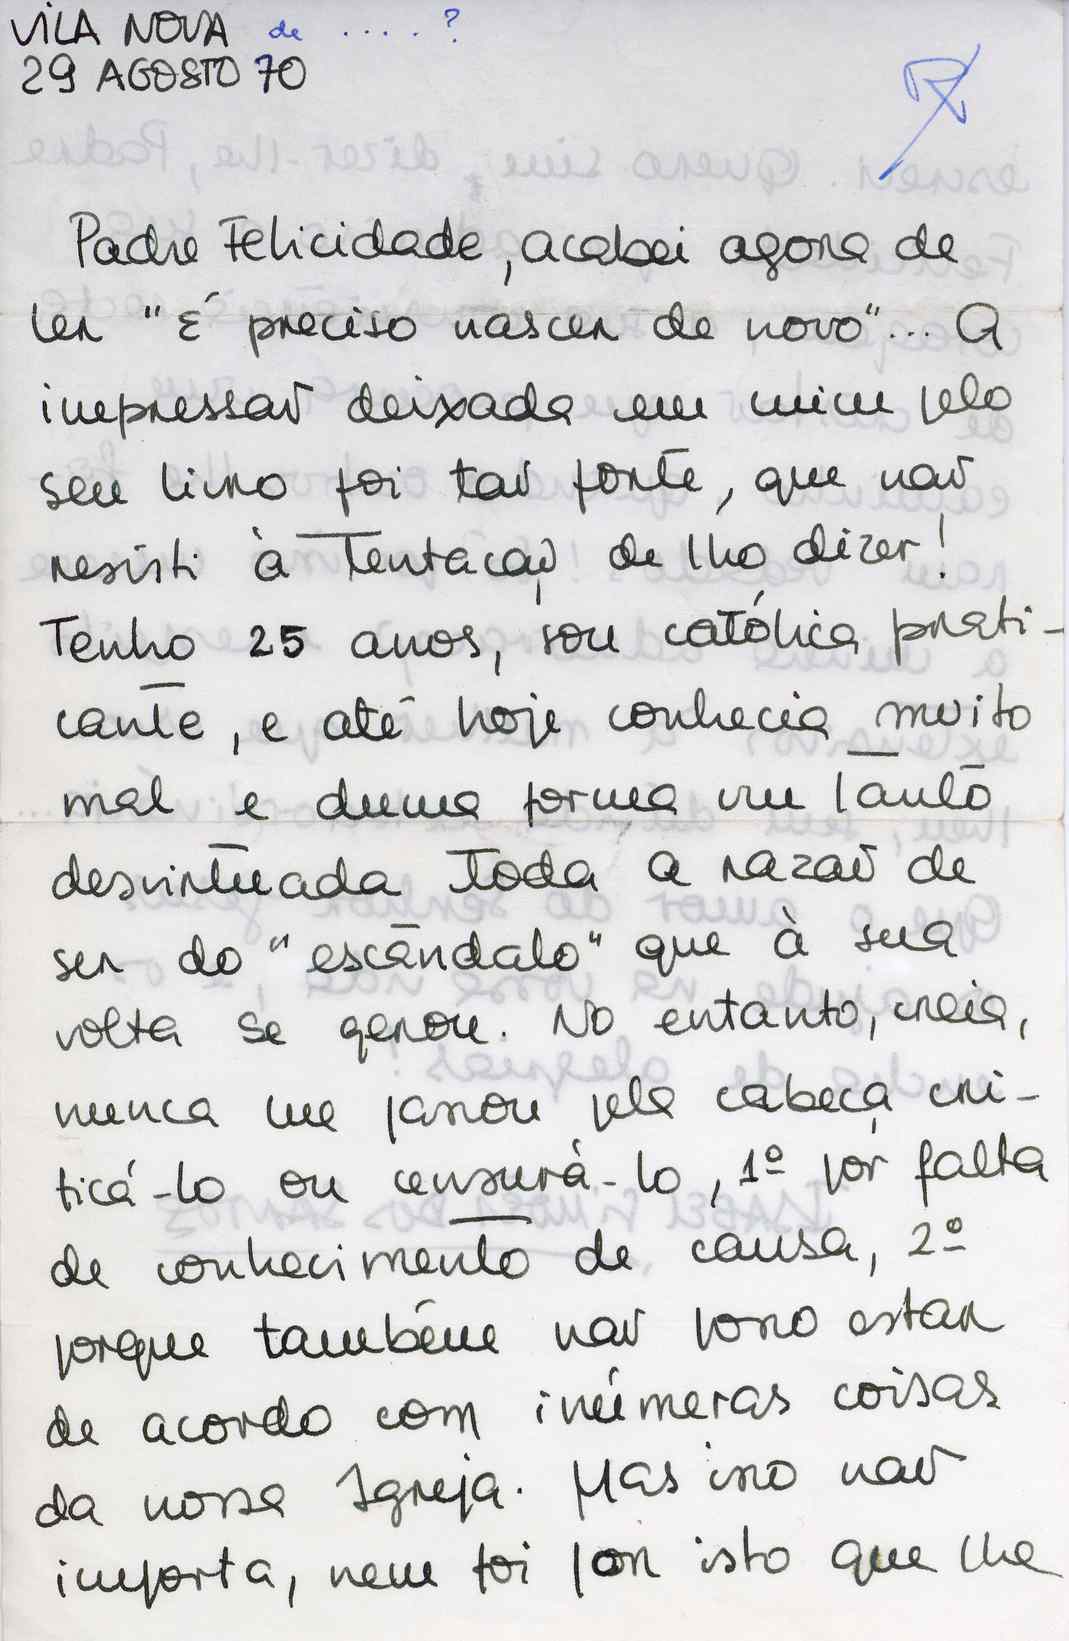 VILA NOVA de .....?
29 AGOSTO 70
Padre Felicidade, acabei agora de
ler "É preciso nascer de novo"... A
impressão deixada em mim pelo
seu livro foi tão forte, que não
resisti à tentação de lho dizer!
Tenho 25 anos, sou católica prati-
cante, e até hoje conhecia muito
mal e duma forma um tanto
desvirtuada toda a razão de
ser do "escândalo" que à sua
volta se gerou. No entanto, creia,
nunca me passou pela cabeça cri-
ticá-lo ou censurá-lo, 1º por falta
de conhecimento de causa, 2º
porque também não posso estar
de acordo com inúmeras coisas
da nossa Igreja. Mas isso não
importa, nem foi por isto que lhe